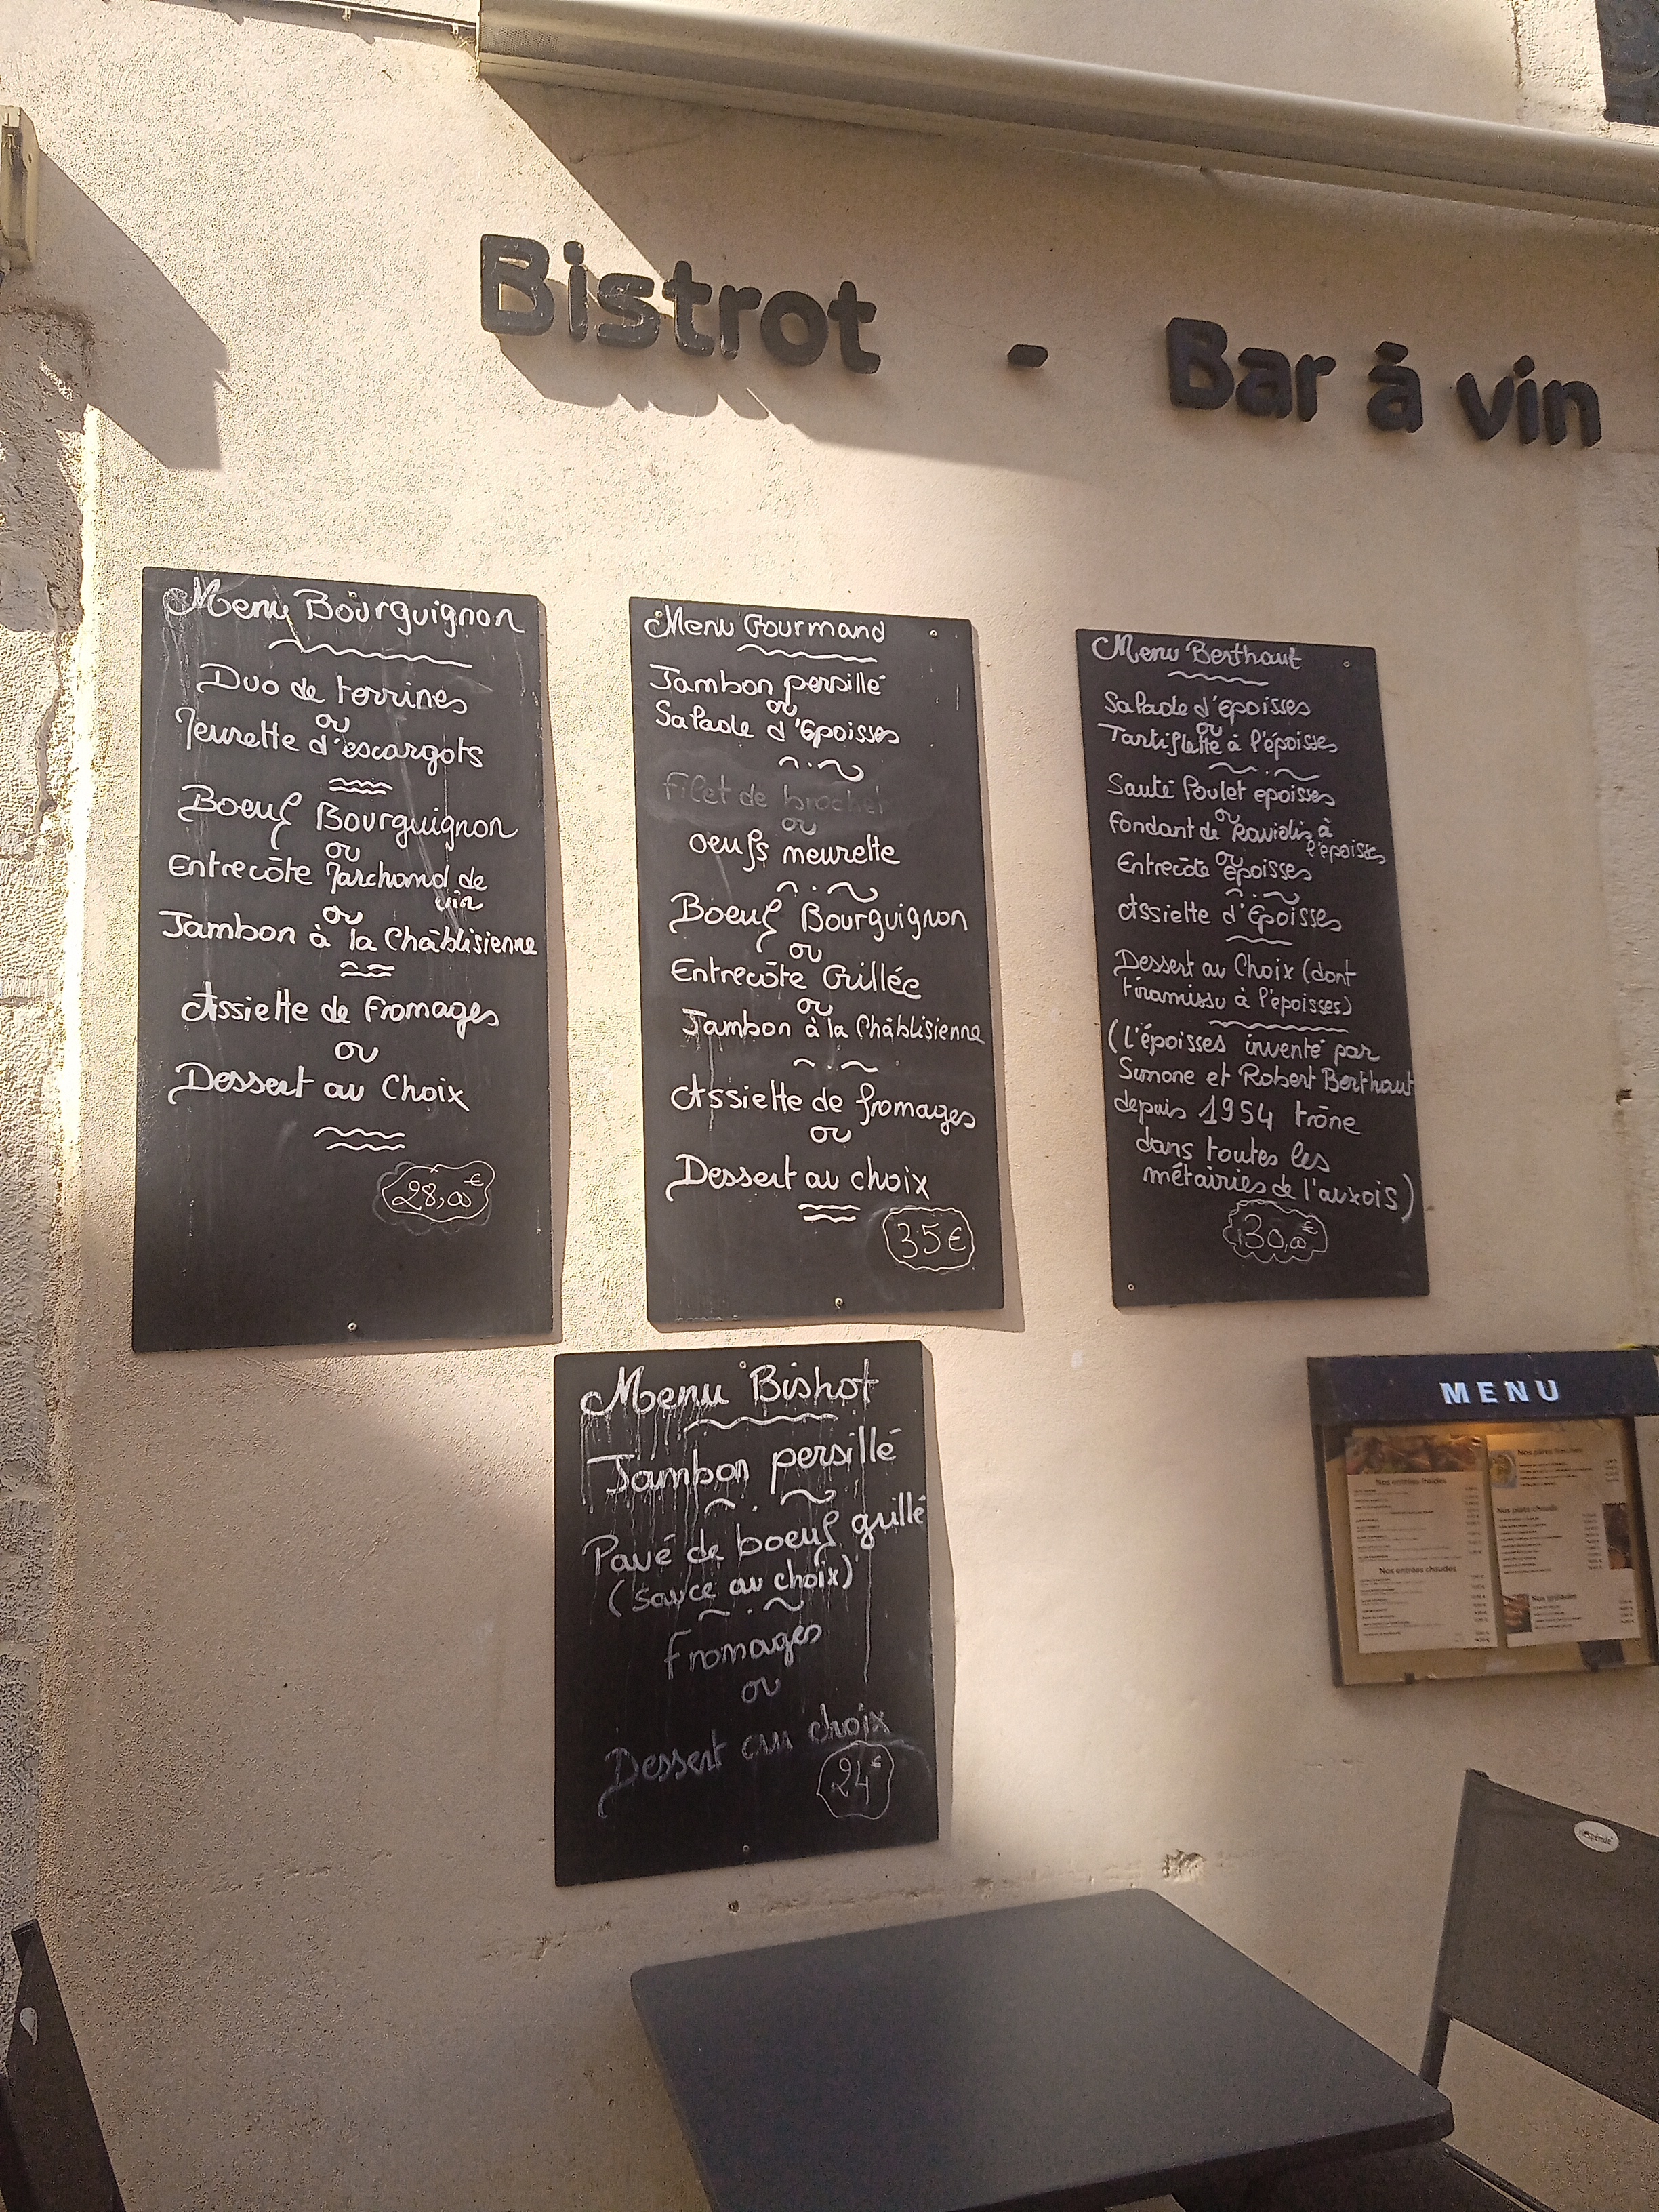 Bistrot - Bar à vin
Menu Bourguignon
Duo de terrines
ou
Meurette d'escargots
Boeuf Bourguignon
ou
Entrecôte Marchand de
vin
ou
Jambon à la Châblisienne
Assiette de Fromages
ou
Dessert au Choix
28,00€
Menu Gourmand
Jambon persillé
ou
Salade d'Epoisses
Filet de brochet
ou
oeufs meurette
Boeuf Bourguignon
ou
Entrecôte Grillée
ou
Jambon à la Châblisienne
Assiette de fromages
ou
Dessert au choix
35€
Menu Berthaut
Salade d'époisses
ou
Tartiflette à l'époisses
Sauté Poulet epoisses
ou
Fondant de Raviolis à
l'époisses
ou
Entrecôte époisses
Assiette d'Epoisses
Dessert au Choix (dont
tiramissu à l'époisses)
(L'époisses inventé par
Simone et Robert Berthaut
depuis 1954 trône
dans toutes les
métairies de l'auxois)
30,00€
Menu Bistrot
Jambon persillé
Pavé de boeuf grillé
(sauce au choix)
Fromages
ou
Dessert au choix
24€
MENU
Nos entrées froides
Nos entrées chaudes
Nos plats chauds